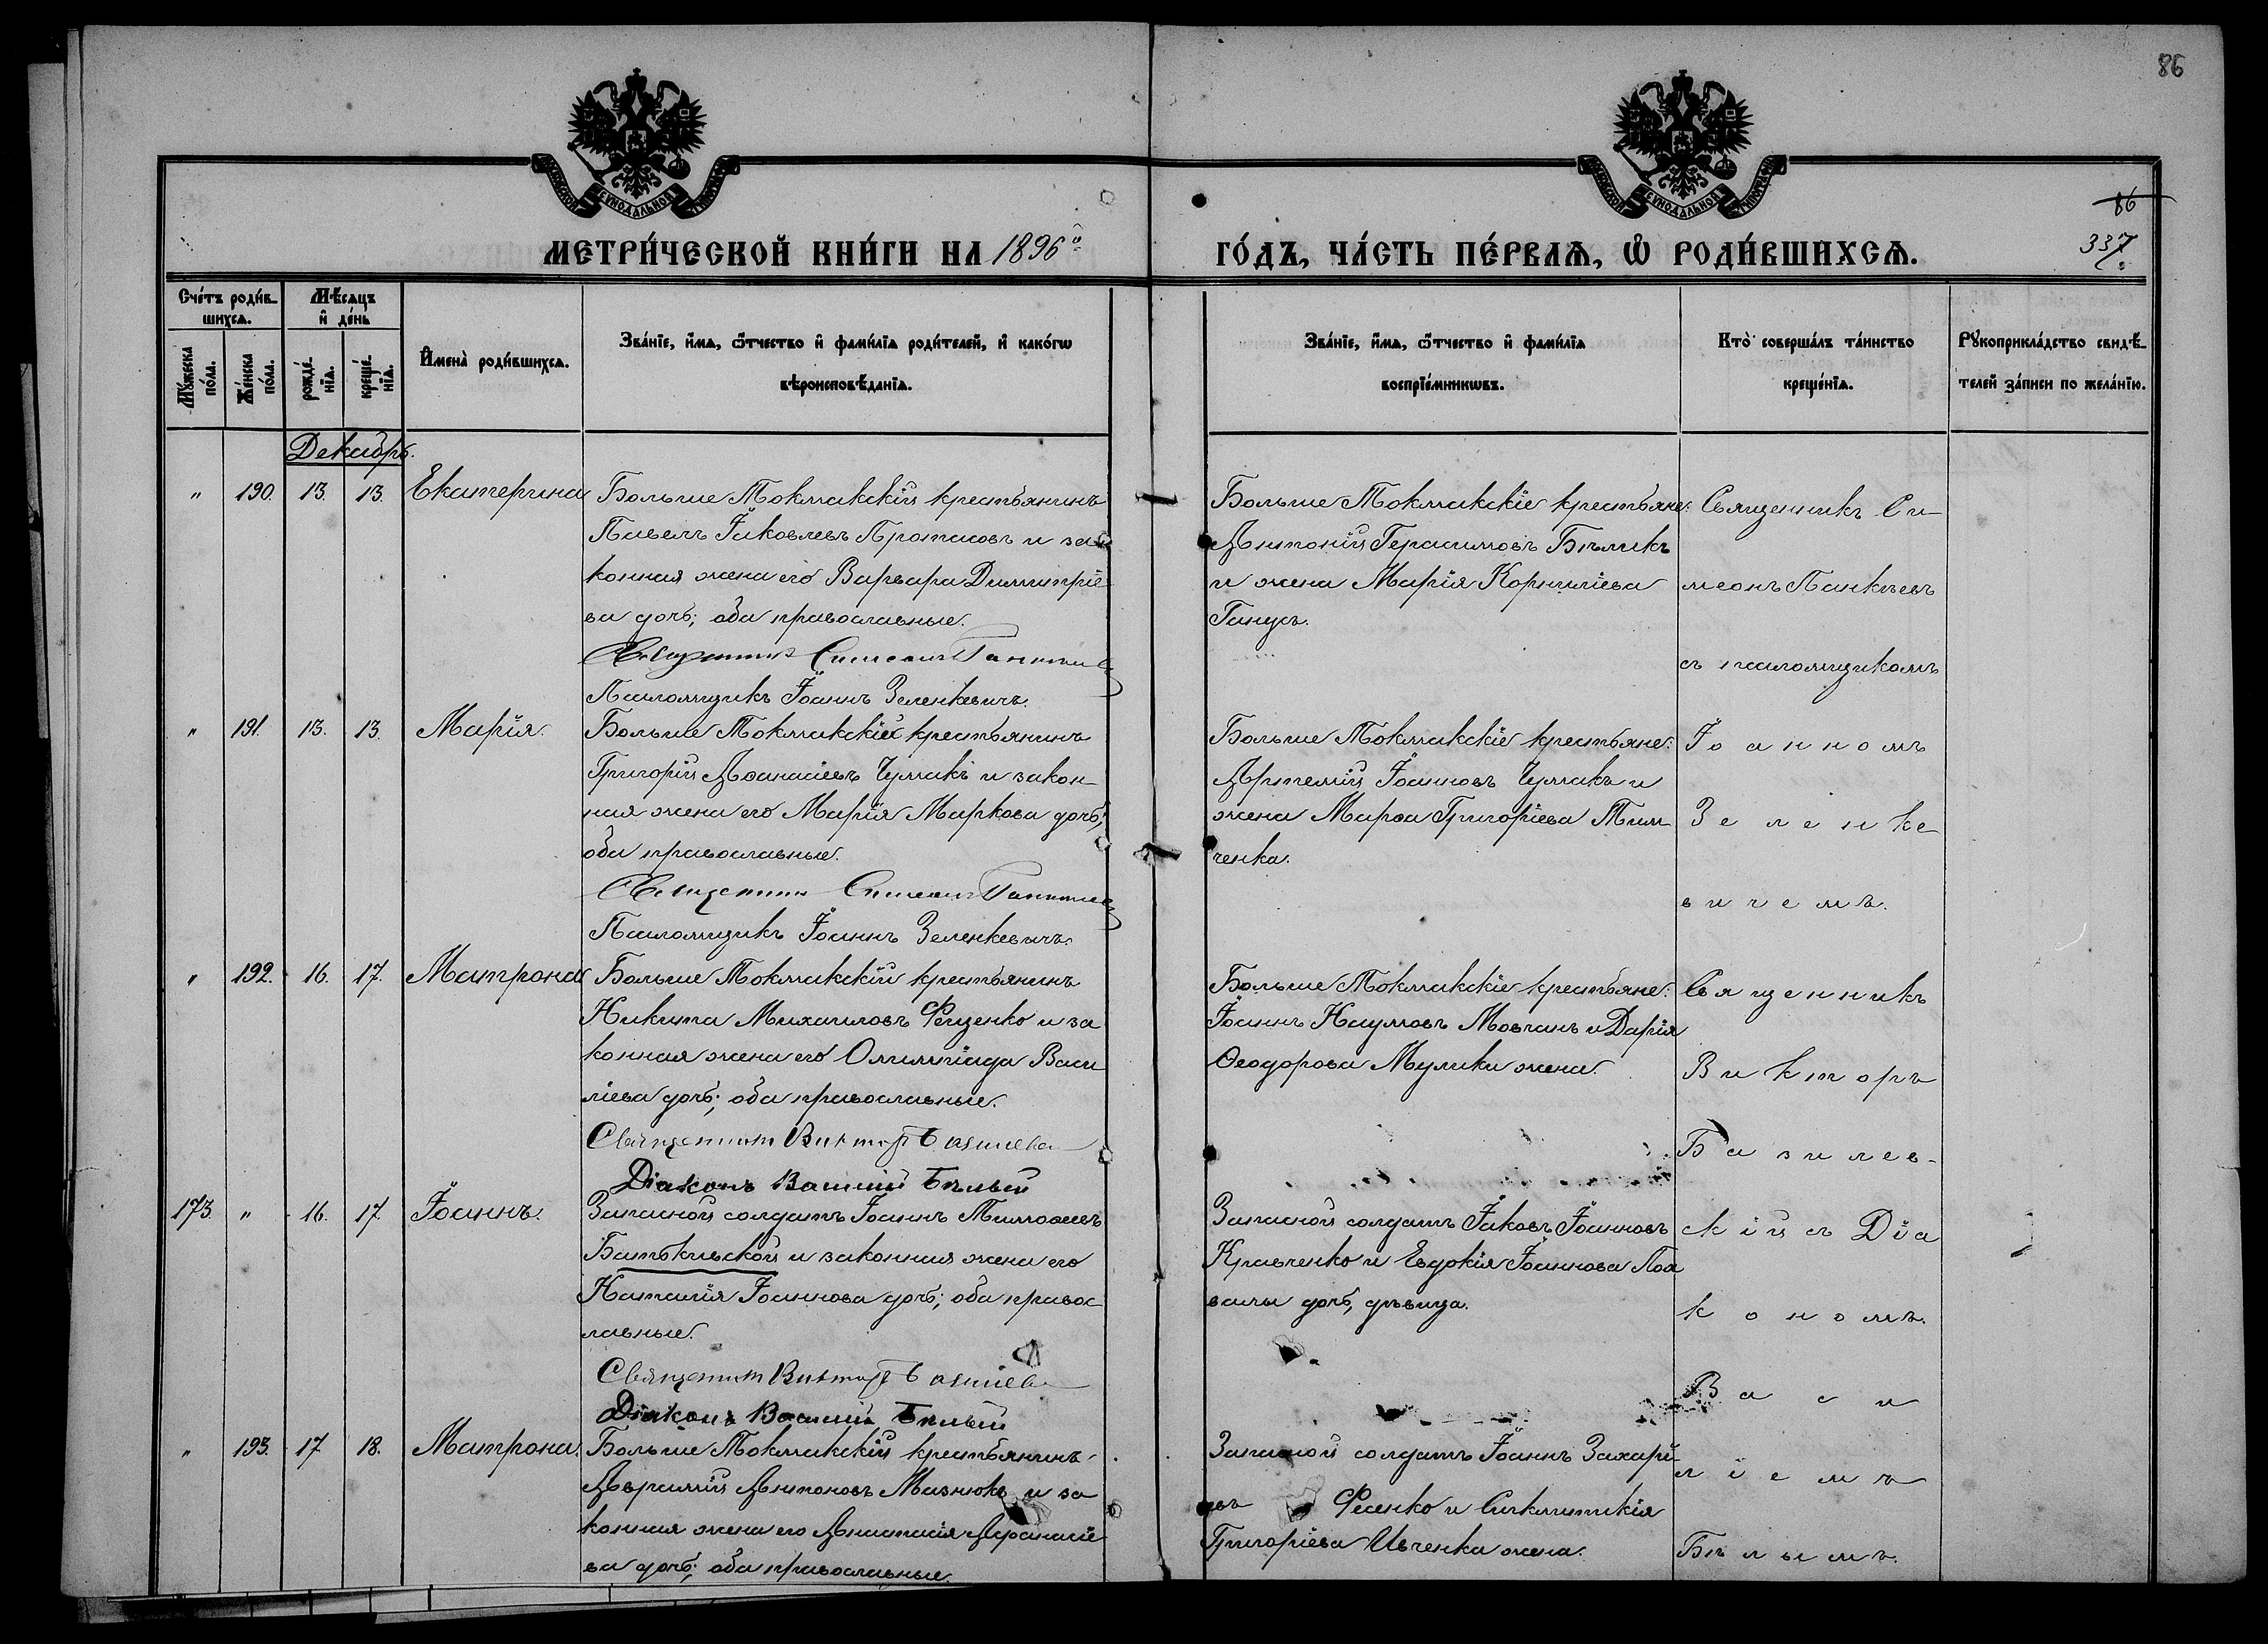 86
86
337.
МЕТРИ́ЧЕСКОЙ КНИ́ГИ НА 1896й
ГО́ДЪ, ЧА́СТЬ ПЕ́РВАѦ, Ѡ҆ РОДИ́ВШИХСѦ.
Сче́тъ роди́в-
шихсѧ.
Мꙋжеска по́ла.
Же́нска по́ла.
Мѣ́сѧцъ
и҆ де́нь
рожде́нїѧ.
креще́нїѧ.
И҆мена̀ роди́вшихсѧ.
Зва́нїе, и҆́мѧ, ѻ҆́тчество и҆ фами́лїѧ роди́телей, и҆ како́гѡ
вѣроисповѣ́данїѧ.
Зва́нїе, и҆́мѧ, ѻ҆́тчество и҆ фами́лїѧ
воспрїе́мникѡвъ.
Кто̀ соверша́лъ та́инство
креще́нїѧ.
Рꙋкоприкла́дство свидѣ́-
телей за́писи по жела́нїю.
Декабрь.
" 190. 13. 13. Екатерина
Больше Токмакскій крестьянинъ
Павелъ Іаковлевъ Протасовъ и за
конная жена его Варвара Димитріе
ва дочь; оба православные.
Священникъ Симеонъ Панкѣев
Псаломщикъ Іоаннъ Зеленкевичъ.
Больше Токмакскіе крестьяне:
Антоній Герасимовъ Бѣликъ
и жена Марія Корниліева
Ганусъ.
Священникъ Си-
меонъ Панкѣевъ
съ псаломщикомъ
Іоанномъ
Зеленке
вичемъ.
" 191. 13. 13. Марія.
Больше Токмакскій крестьянинъ
Григорій Аѳанасіевъ Чумакъ и закон-
ная жена его Марія Маркова дочь;
оба православные.
Священникъ Симеонъ Панкѣев
Псаломщикъ Іоаннъ Зеленкевичъ.
Больше Токмакскіе крестьяне:
Артемій Іоанновъ Чумакъ и
жена Марѳа Григоріева Тим
ченка.
" 192. 16. 17. Матрона
Больше Токмакскій крестьянинъ
Никита Михаиловъ Фещенко и за
конная жена его Олимпіада Васи
ліева дочь; оба православные.
Священникъ Викторъ Базилев
Діаконъ Василій Бѣлый
Больше Токмакскіе крестьяне:
Іоаннъ Наумовъ Мовчанъ и Дарія
Ѳеодорова Мулики жена.
Священникъ
Викторъ
Базилев-
кій съ Діа
кономъ
Васи
ліемъ
Бѣлымъ.
173. " 16. 17. Іоаннъ.
Запасной солдатъ Іоаннъ Тимоѳеевъ
и законная жена его
Наталія Іоаннова дочь; оба правос
лавные.
Священникъ Викторъ Базилев
Діаконъ Василій Бѣлый
Запасной солдатъ Іаковъ Іоанновъ
Кравченко и Евдокія Іоаннова
дочь, дѣвица.
" 193. 17 18. Матрона.
Больше Токмакскій крестьянинъ
Аврамій Антоновъ Мазнюкъ и за
конная жена его Анастасія Аѳанасіе
ва дочь; оба православные.
Запасной солдатъ Іоаннъ Захарі
евъ Фесенко и Синклитикія
Григоріева Ивченка жена.